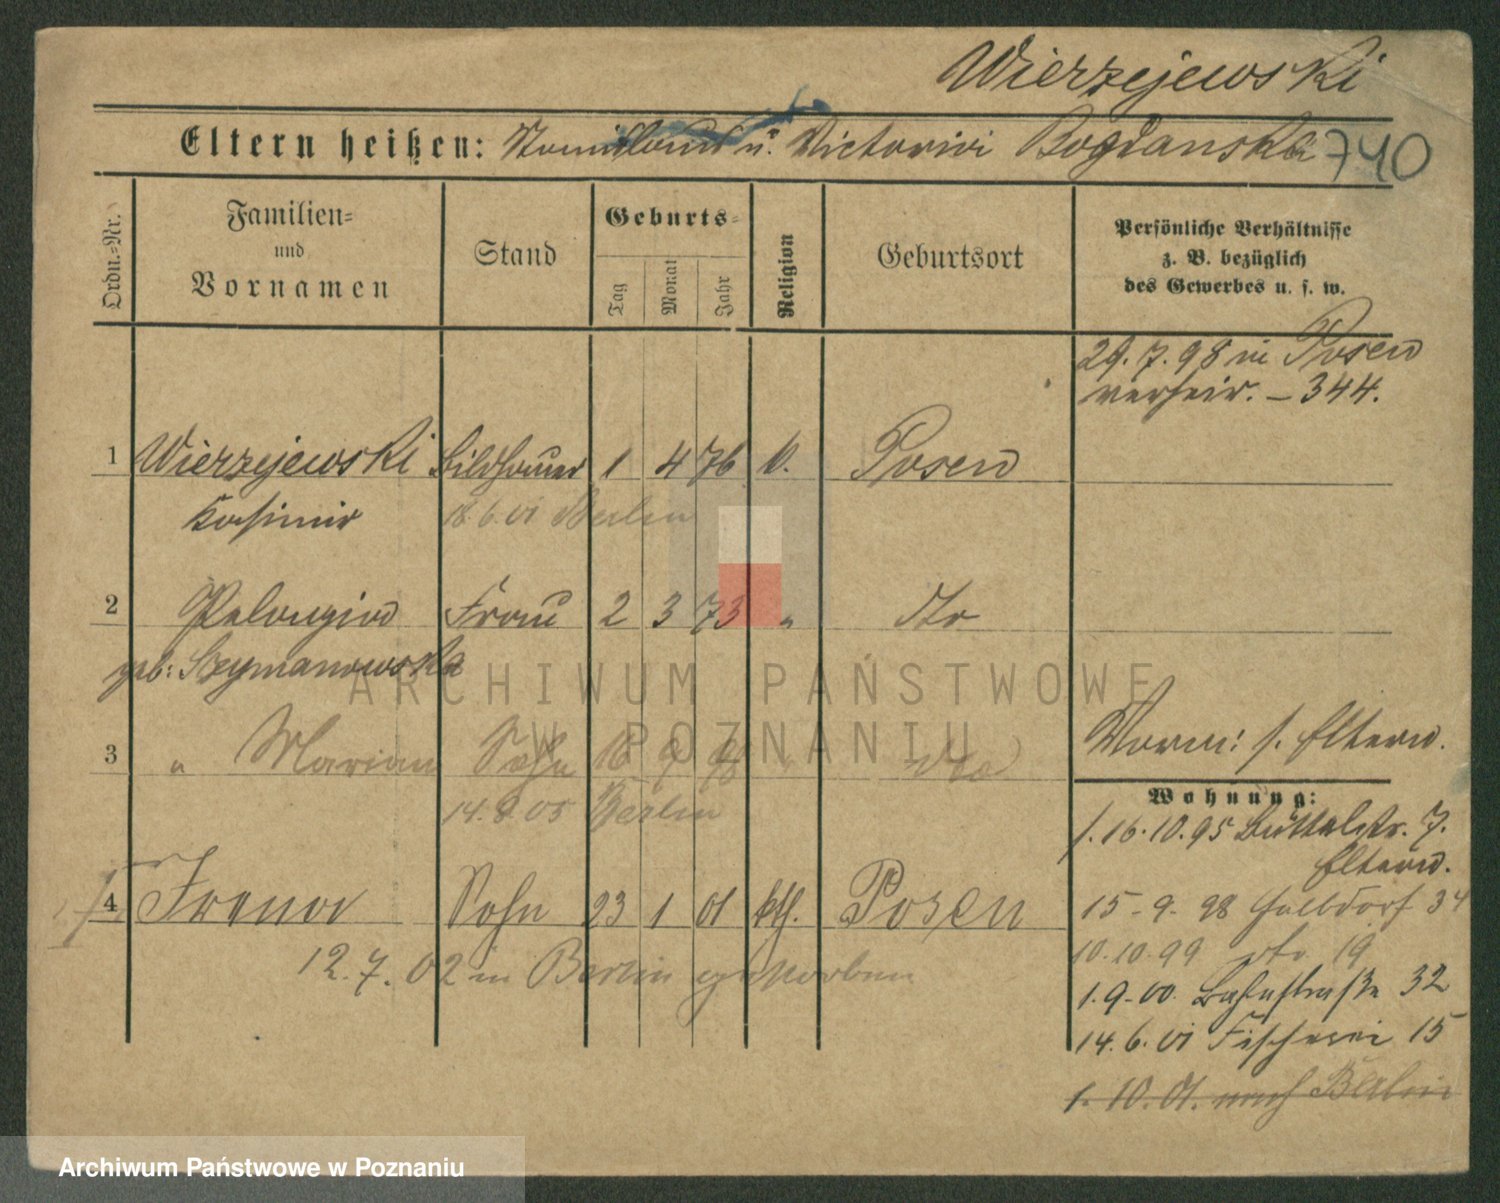 Wierzejewski
Eltern heißen: Stanislaus u. Victoria Bogdanska 740
Ordn.-Nr.
Familien-
und
Vornamen
Stand
Geburts-
Tag
Monat
Jahr
Religion
Geburtsort
Persönliche Verhältnisse
z. B. bezüglich
des Gewerbes u. s. w.
29. 7. 98 in Posen
verheir. – 344.
1 Wierzejewski Bildhauer 1 4 76 k. Posen
Kasimir 18. 6. 01 Berlin
2 Pelagia Frau 2 3 73 " dto
geb: Szymanowska
3 " Marian Sohn 16 9 98 " dto
14. 8 05 Berlin
Vorm: s. Eltern.
Wohnung:
1. 16. 10. 95 Büttelstr. 7.
Eltern.
4 Sohn 23 1 01 kth. Posen
12. 7. 02 in Berlin gestorben
15. 9. 98 Halbdorf 34
10. 10. 99 dto 19
1. 9. 00. Bahnstraße 32
14. 6. 01 Fischerei 15
1. 10. 01. nach Berlin
ARCHIWUM PAŃSTWOWE
W POZNANIU
Archiwum Państwowe w Poznaniu